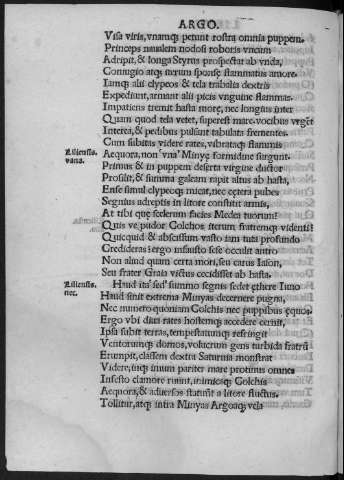 ARGO.
Visa viris, vnamq; petunt rostra omnia puppem.
Princeps naualem nodosi roboris vncum
Adripit, & longa Styrus prospectat ab vnda,
Coniugio atq; iterum sponsæ flammatus amore.
Iamq; alii clypeos & tela trabalia dextris
Expediunt, armant alii picis vnguine flammas.
Impatiens tremit hasta moræ, nec longius inter
Quam quod tela vetet, superest mare. vocibus vrget
Interea, & pedibus pulsant tabulata frementes.
Cum subitas videre rates, vibrataq; flammis
Liliensis.
vana.
Aequora, non vna Minyę formidine surgunt.
Primus & in puppem deserta virgine ductor
Prosilit, & summa galeam rapit altus ab hasta,
Ense simul clypeoq; micat, nec cętera pubes
Segnius adreptis in litore constitit armis,
At tibi quę scelerum facies Medea tuorum?
Quis ve pudor Colchos iterum fratremq; videnti?
Quicquid & abscissum vasto iam tuta profundo
Credideras: ergo infausto sese occulit antro
Non aliud quam certa mori, seu carus Iason,
Seu frater Graia victus cecidisset ab hasta.
Liliensis.
nec.
Haud ita sed summo segnis sedet ęthere Iuno
Haud sinit extrema Minyas decernere pugna,
Nec numero quoniam Colchis nec puppibus ęquos.
Ergo vbi diua rates hostemq; accedere cernit,
Ipsa subit terras, tempestatumq; refringit
Ventorumq; domos, volucrum gens turbida fratrū
Erumpit, classem dextra Saturnia monstrat
Videre, inq; imum pariter mare protinus omnes
Infesto clamore ruunt, inimicaq; Colchis
Aequora, & aduersos statuūt a litore fluctus.
Tollitur, atq; intra Minyas Argoaq; vela